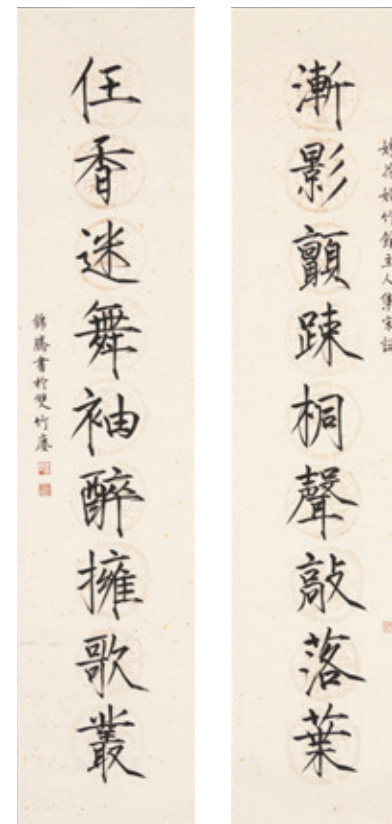 漸影顫踈桐聲敲落葉
主人集宋詞
任香迷舞袖醉擁歌叢
書於雙竹廬